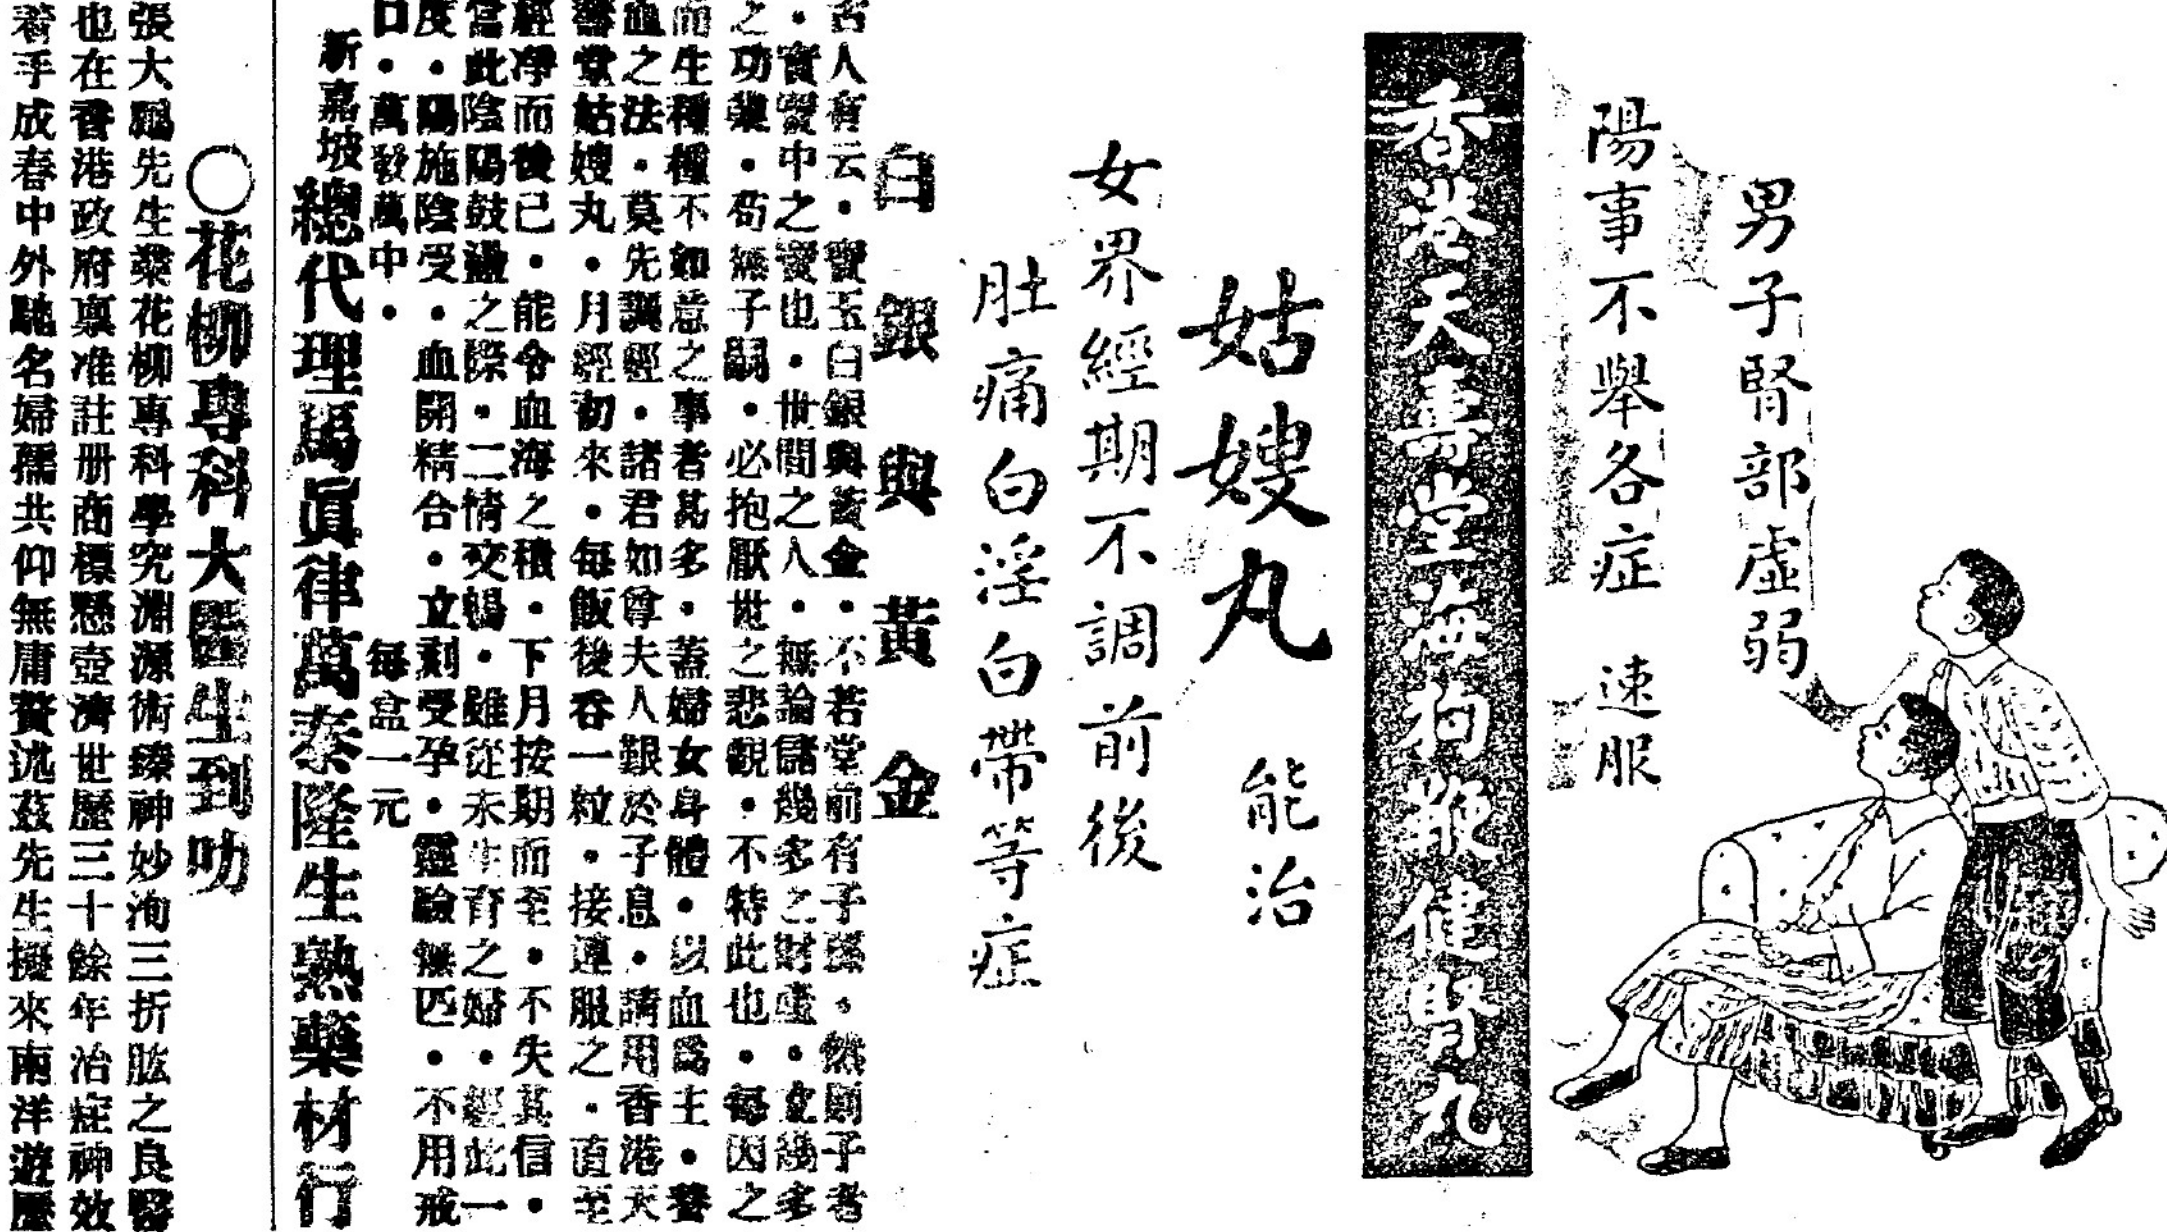 男子腎部虛弱
陽事不舉各症 速服
香港天壽堂海狗鞭健腎丸
姑嫂丸 能治
女界經期不調前後
肚痛白淫白帶等症
白銀與黃金
古人有云·寶玉白銀與黃金·不若堂前有子孫·然則子者
·實寶中之寶也·世間之人·無論儲幾多之財產·立幾多
之功業·苟無子嗣·必抱厭世之悲觀·不特此也·每因之
而生種種不如意之事者甚多·蓋婦女身體·以血爲主·養
血之法·莫先調經·諸君如尊夫人艱於子息·請用香港天
壽堂姑嫂丸·月經初來·每飯後吞一粒·接連服之·直至
經凈而後已·能令血海之積·下月按期而至·不失其信·
當此陰陽鼓盪之際·二情交暢·雖從未生育之婦·經此一
度·陽施陰受·血開精合·立刻受孕·靈驗無匹·不用戒
口·萬發萬中· 每盒一元
新嘉坡總代理馬眞律萬泰隆生熟藥材行
○花柳專科大醫生到叻
張大鵬先生業花柳專科學究淵源術臻神妙洵三折肱之良醫
也在香港政府稟准註册商標懸壺濟世歷三十餘年治症神效
着手成春中外馳名婦孺共仰無庸贅述茲先生擬來南洋遊歷